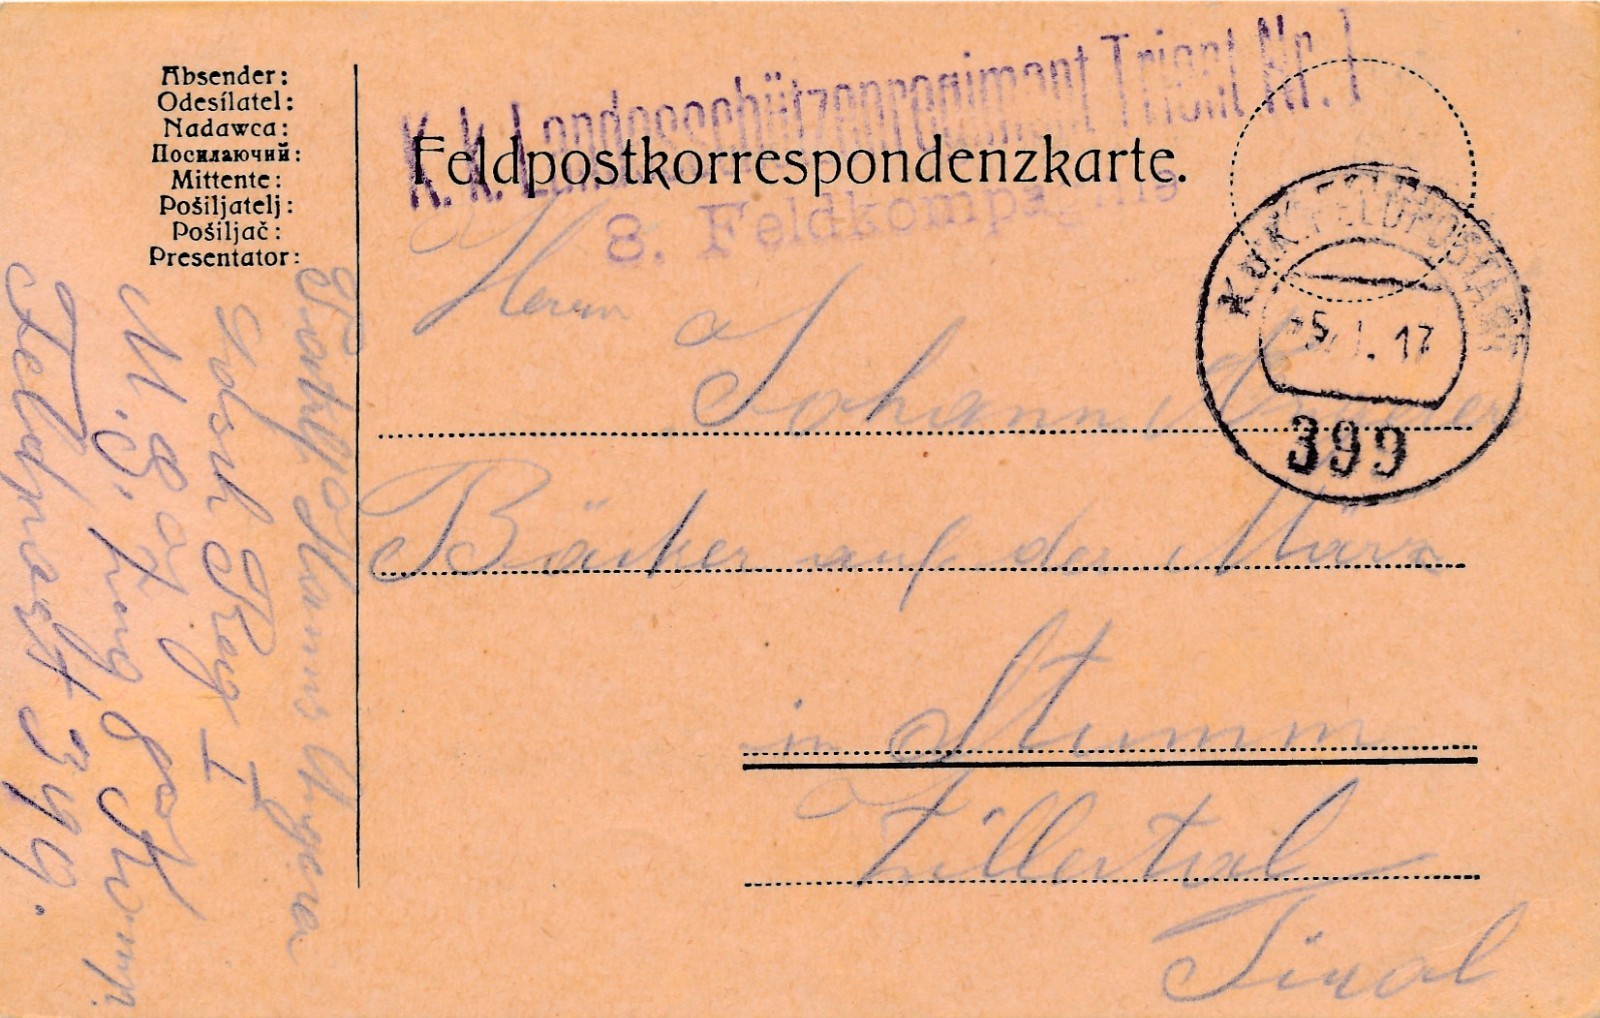 Absender:
Odesílatel:
Nadawca:
Посилаючий:
Mittente:
Pošiljatelj:
Pošiljač:
Presentator:
K. K. Landesschützenregiment Trient Nr. I
Feldpostkorrespondenzkarte.
8. Feldkompagnie
K.u.K. FELDPOSTAMT
17
399
Herrn
Johann
Bäcker auf der
in Stumm
Zillertal
Tirol
Reg I
Zug 8 Komp.
Feldpost 399.